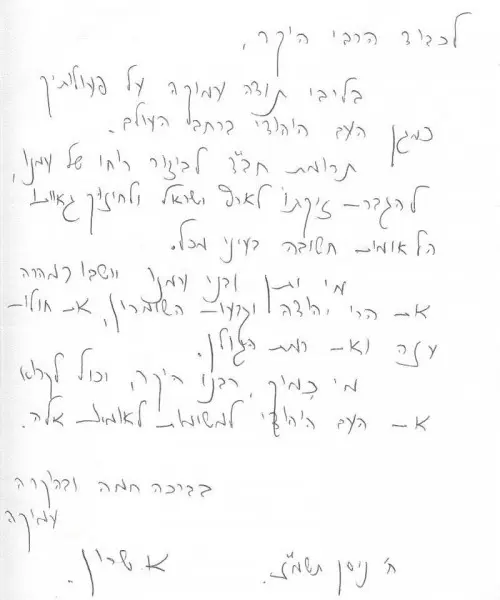 לכבוד הרבי היקר,
בליבי תודה עמוקה על פעולותיך
כמגן העם היהודי ברחבי העולם.
תרומת חב"ד לביצור רוחו של עמנו,
להגברת זיקתו לארץ ישראל ולחיזוק גאוות
הלאומית חשובה בעיני מכל.
מי יתן ובני עמנו יישבו במהרה
את הרי יהודה וקרעות השומרון, את חולות
עזה ואת רמת הגולן.
מי כמוך, רבנו היקר, יכול לקרוא
את העם היהודי למשימות לאומיות אלה.
בברכה חמה ובהוקרה
עמוקה
א. שרון.
ח' ניסן תשמ"ז.